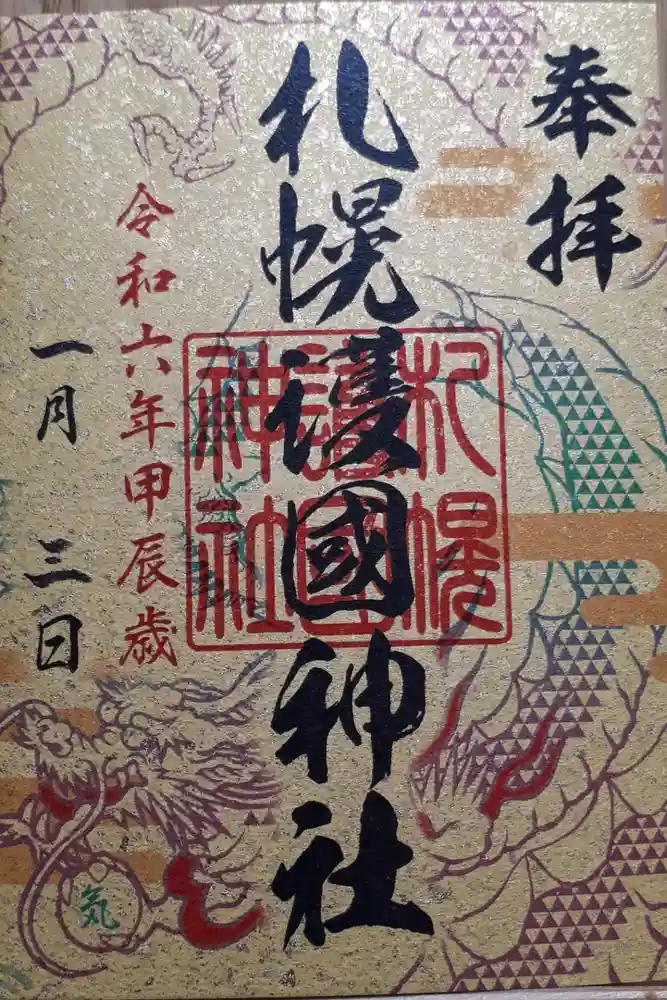 奉拝
札幌護國神社
札幌
護国
神社
令和六年甲辰歳
一月三日
気